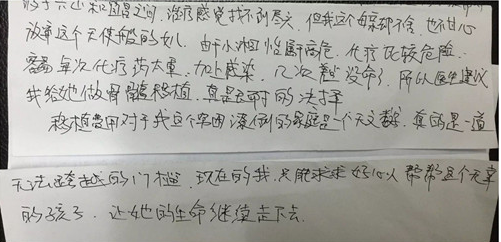 于 和 之间, 治疗感觉找不到尽头, 但我这个母亲却不舍, 也不甘心
放弃这个天使般的女儿. 由于小湘怡 高危, 化疗比较危险.
每次化疗药太重, 加上感染, 几次 没命了. 所以医生建议
我给她做骨髓移植, 真是 的决择
移植费用对于我这个穷困潦倒的家庭是一个天文数, 真的是一道
无法跨越的门槛. 现在的我, 只能求求好心人帮帮这个无辜
的孩子. 让她的生命继续走下去.